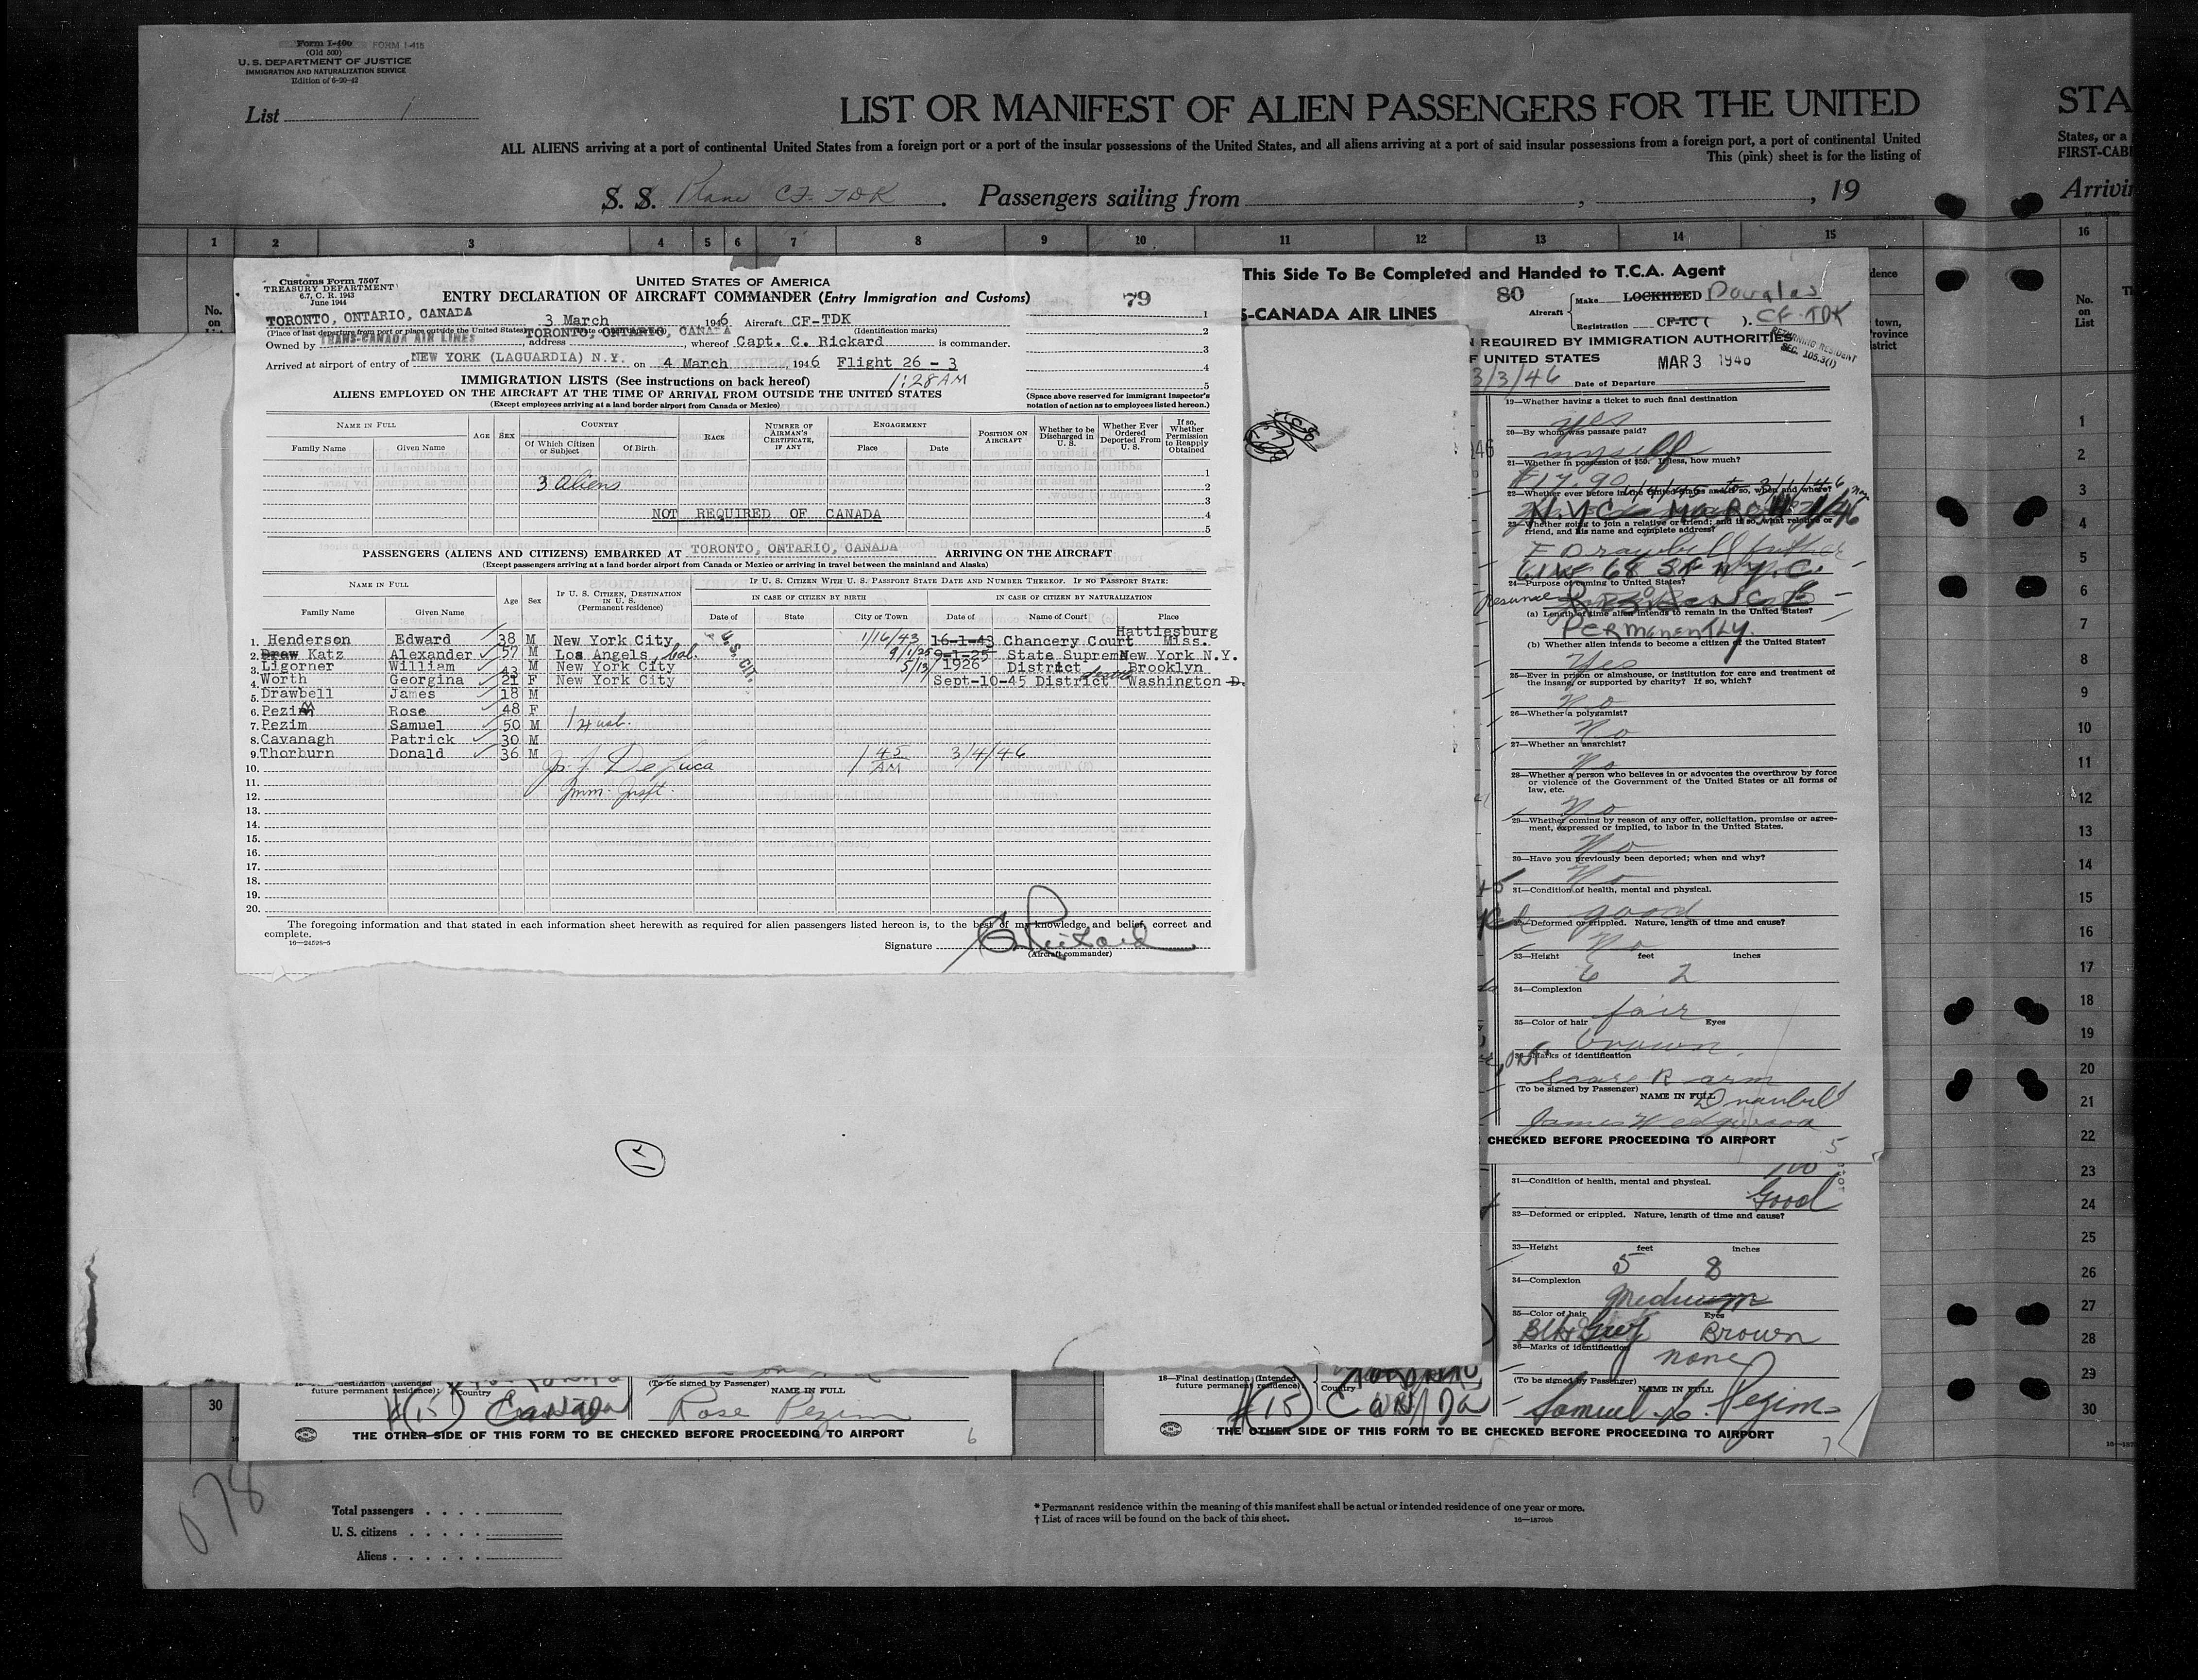 Form I-466 FORM I-415
(Old 500)
U. S. DEPARTMENT OF JUSTICE
IMMIGRATION AND NATURALIZATION SERVICE
Edition of 6-20-42
List 1
LIST OR MANIFEST OF ALIEN PASSENGERS FOR THE UNITED
STA
ALL ALIENS arriving at a port of continental United States from a foreign port or a port of the insular possessions of the United States, and all aliens arriving at a port of said insular possessions from a foreign port, a port of continental United
States, or a
This (pink) sheet is for the listing of
FIRST-CAB
S. S. Plane CF-TDK. Passengers sailing from , , 19
Arrivin
1 2 3 4 5 6 7 8 9 10 11 12 13 14 15 16
No. on List
Customs Form 7507
TREASURY DEPARTMENT
6.7, C. R. 1943
June 1944
UNITED STATES OF AMERICA
ENTRY DECLARATION OF AIRCRAFT COMMANDER (Entry Immigration and Customs)
79
TORONTO, ONTARIO, CANADA, 3 March 1946 Aircraft CF-TDK
(Place of last departure from port or place outside the United States) (Identification marks)
Owned by TRANS-CANADA AIR LINES, address TORONTO, ONTARIO, CANADA, whereof Capt. C. Rickard is commander.
Arrived at airport of entry of NEW YORK (LAGUARDIA) N.Y. on 4 March, 1946 Flight 26 - 3
1:28 AM
IMMIGRATION LISTS (See instructions on back hereof)
ALIENS EMPLOYED ON THE AIRCRAFT AT THE TIME OF ARRIVAL FROM OUTSIDE THE UNITED STATES
(Except employees arriving at a land border airport from Canada or Mexico)
1
2
3
4
5
(Space above reserved for immigrant Inspector's notation of action as to employees listed hereon.)
NAME IN FULL
Family Name Given Name
AGE SEX
COUNTRY
Of Which Citizen or Subject Of Birth
RACE
NUMBER OF AIRMAN'S CERTIFICATE, IF ANY
ENGAGEMENT
Place Date
POSITION ON AIRCRAFT
Whether to be Discharged in U. S.
Whether Ever Ordered Deported From U. S.
If so, Whether Permission to Reapply Obtained
1
3 aliens 2
3
NOT REQUIRED OF CANADA 4
5
PASSENGERS (ALIENS AND CITIZENS) EMBARKED AT TORONTO, ONTARIO, CANADA ARRIVING ON THE AIRCRAFT
(Except passengers arriving at a land border airport from Canada or Mexico or arriving in travel between the mainland and Alaska)
NAME IN FULL
Family Name Given Name
Age Sex
IF U. S. CITIZEN, DESTINATION IN U. S. (Permanent residence)
IF U. S. CITIZEN WITH U. S. PASSPORT STATE DATE AND NUMBER THEREOF. IF NO PASSPORT STATE:
IN CASE OF CITIZEN BY BIRTH IN CASE OF CITIZEN BY NATURALIZATION
Date of State City or Town Date of Name of Court Place
1. Henderson Edward 38 M New York City 1/16/43 16-1-43 Chancery Court Hattiesburg Miss.
2. Draw Katz Alexander 57 M Los Angels, Cal. 9/1/25 9-1-25 State Supreme New York N.Y.
3. Ligorner William 43 M New York City 5/13/1926 District Brooklyn
4. Worth Georgina 21 F New York City Sept-10-45 District Washington D.
U.S. CIT.
5. Drawbell James 18 M
6. Pezim Rose 48 F
7. Pezim Samuel 50 M
8. Cavanagh Patrick 30 M
9. Thorburn Donald 36 M
10. De Luca 1 45 AM 3/4/46
11.
12. Imm. Inspt.
13.
14.
15.
16.
17.
18.
19.
20.
The foregoing information and that stated in each information sheet herewith as required for alien passengers listed hereon is, to the best of my knowledge and belief, correct and complete.
16—24598-5
Signature C Rickard
(Aircraft commander)
This Side To Be Completed and Handed to T.C.A. Agent
S-CANADA AIR LINES
80
Aircraft
Make LOCKHEED Douglas
Registration CF-TC ( ). CF-TDK
REQUIRED BY IMMIGRATION AUTHORITIES
F UNITED STATES MAR 3 1946
RETURNING RESIDENT
SEC. 105.3(1)
3/3/46 Date of Departure
19—Whether having a ticket to such final destination
yes
20—By whom was passage paid?
myself
21—Whether in possession of $50. If less, how much?
$17.90
22—Whether ever before in the United States and if so, when and where?
N.Y.C. MARCH 1/46
23—Whether going to join a relative or friend; and if so, what relative or friend, and his name and complete address?
F Drawbell father
61 W 68 St N.Y.C.
24—Purpose of coming to United States?
Resume Residence
(a) Length of time alien intends to remain in the United States?
PERMANENTLY.
(b) Whether alien intends to become a citizen of the United States?
Yes
25—Ever in prison or almshouse, or institution for care and treatment of the insane, or supported by charity? If so, which?
No
26—Whether a polygamist?
No
27—Whether an anarchist?
No
28—Whether a person who believes in or advocates the overthrow by force or violence of the Government of the United States or all forms of law, etc.
No
29—Whether coming by reason of any offer, solicitation, promise or agreement, expressed or implied, to labor in the United States.
No
30—Have you previously been deported; when and why?
No
31—Condition of health, mental and physical.
good
32—Deformed or crippled. Nature, length of time and cause?
No
33—Height feet inches
6 2
34—Complexion
fair
35—Color of hair Eyes
brown
36—Marks of identification
Scare R arm
(To be signed by Passenger) NAME IN FULL
Drawbell
James Wedgwood
CHECKED BEFORE PROCEEDING TO AIRPORT
5
No
31—Condition of health, mental and physical.
Good
32—Deformed or crippled. Nature, length of time and cause?
33—Height feet inches
5 8
34—Complexion
Medium
35—Color of hair Eyes
Blk Grey Brown
36—Marks of identification
none
(To be signed by Passenger) NAME IN FULL
Samuel Pezim
future permanent residence): Country
(15) Canada
(To be signed by Passenger) NAME IN FULL
Rose Pezim
THE OTHER SIDE OF THIS FORM TO BE CHECKED BEFORE PROCEEDING TO AIRPORT 6
18—Final destination (Intended future permanent residence): Country
TORONTO
(15) CANADA
THE OTHER SIDE OF THIS FORM TO BE CHECKED BEFORE PROCEEDING TO AIRPORT 7
dence
town,
rovince
strict
No. on List
1
2
3
4
5
6
7
8
9
10
11
12
13
14
15
16
17
18
19
20
21
22
23
24
25
26
27
28
29
30
30
078
Total passengers . . . .
U. S. citizens . . . . .
Aliens . . . . . .
* Permanent residence within the meaning of this manifest shall be actual or intended residence of one year or more.
† List of races will be found on the back of this sheet.
16—18709b